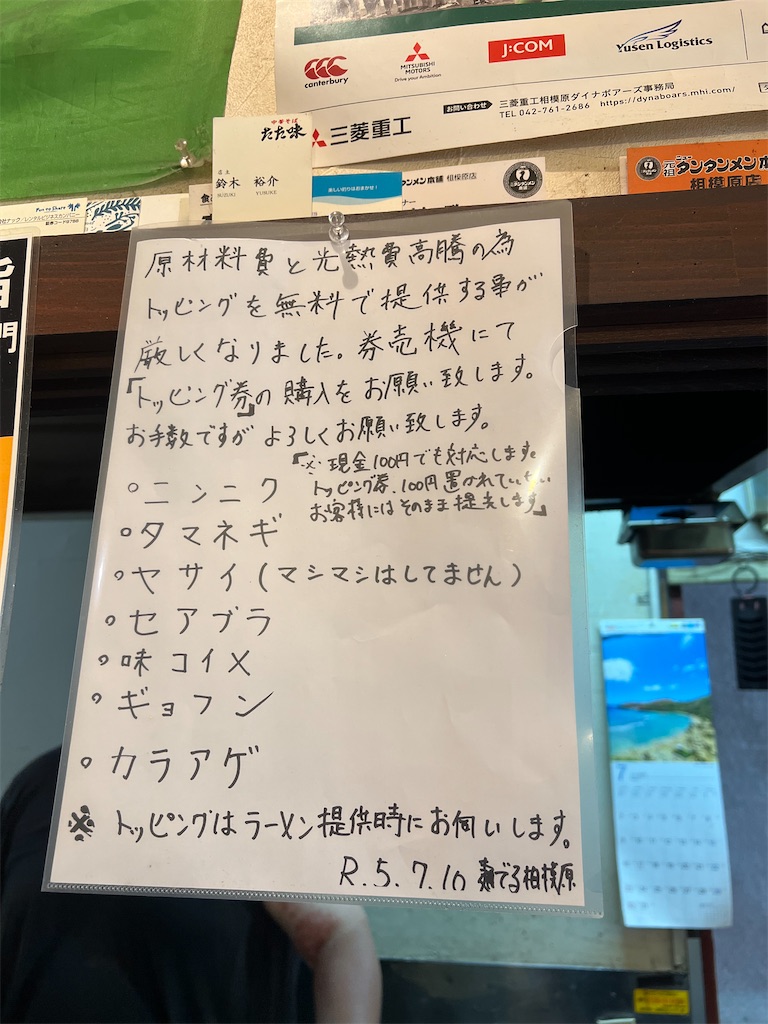 canterbury
MITSUBISHI
MOTORS
Drive your Ambition
J:COM
Yusen Logistics
三菱重工
お問い合わせ
三菱重工相模原ダイナボアーズ事務局
TEL 042-761-2686 https://dynaboars.mhi.com/
中華そば
たた味
店主
鈴木 裕介
SUZUKI YUSUKE
楽しい釣りはおまかせ!
タンメン本舗 相模原店
元祖
タンタンメン本
相模原店
原材料費と光熱費高騰の為
トッピングを無料で提供する事が
厳しくなりました。券売機にて
「トッピング券」の購入をお願い致します。
お手数ですがよろしくお願い致します。
「※現金100円でも対応します。
トッピング券、100円置かれていない
お客様にはそのまま提供します」
○ニンニク
○タマネギ
○ヤサイ(マシマシはしてません)
○セアブラ
○味コイメ
○ギョフン
○カラアゲ
※トッピングはラーメン提供時にお伺いします。
R.5.7.10 麺でる相模原
7